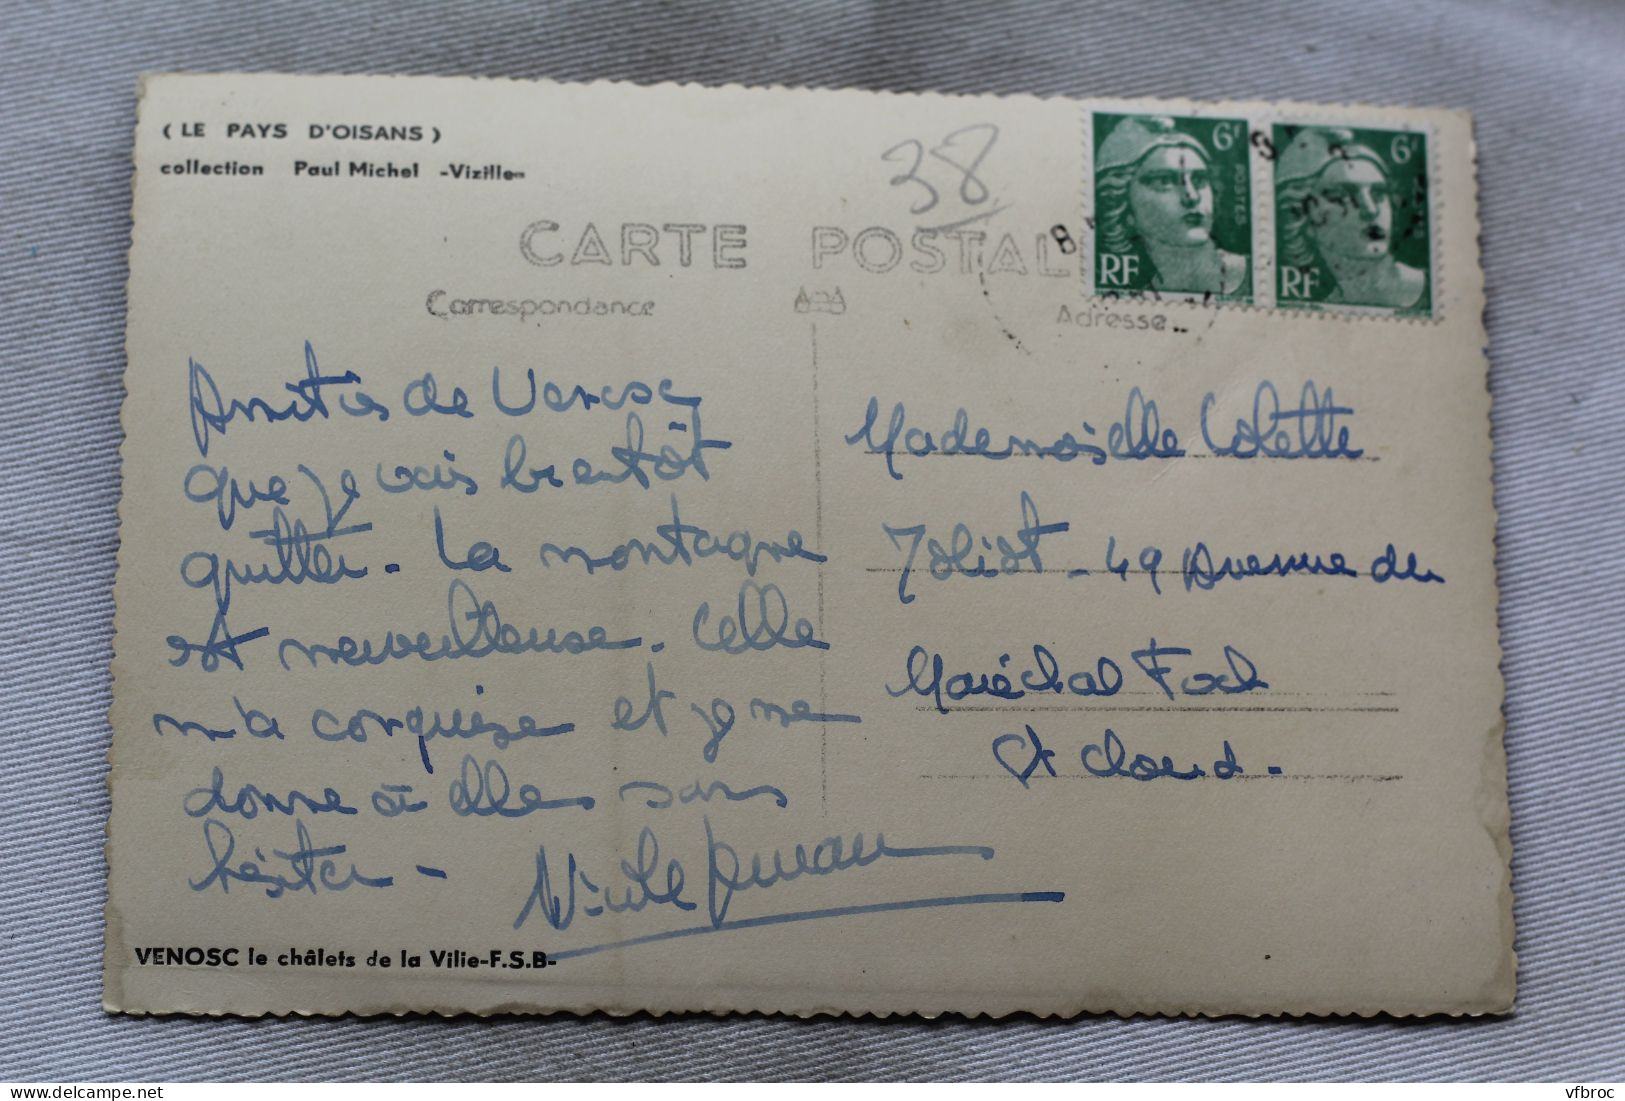 ( LE PAYS D'OISANS )
collection Paul Michel -Vizille-
38
CARTE POSTAL
Correspondance
Adresse
6F
POSTES
RF
6F
RF
Amitiés de Venosc
que je vais bientôt
quitter - La montagne
est merveilleuse. Celle
m'a conquise et je me
donne à elle sans
hésiter -
Nicole
Mademoiselle Colette
Joliot - 49 Avenue du
Maréchal Foch
St Cloud -
VENOSC le châlets de la Ville-F.S.B-
vfbroc